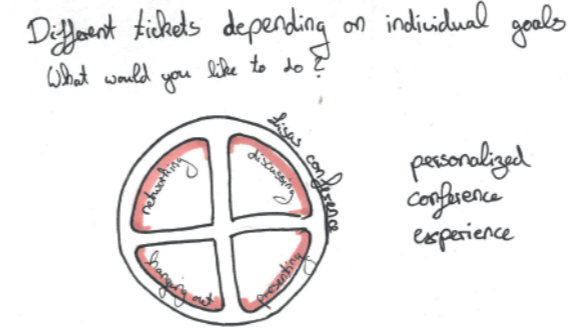 Different tickets depending on individual goals
What would you like to do?
lisas conference
networking
discussing
hanging out
presenting
personalized
conference
experience